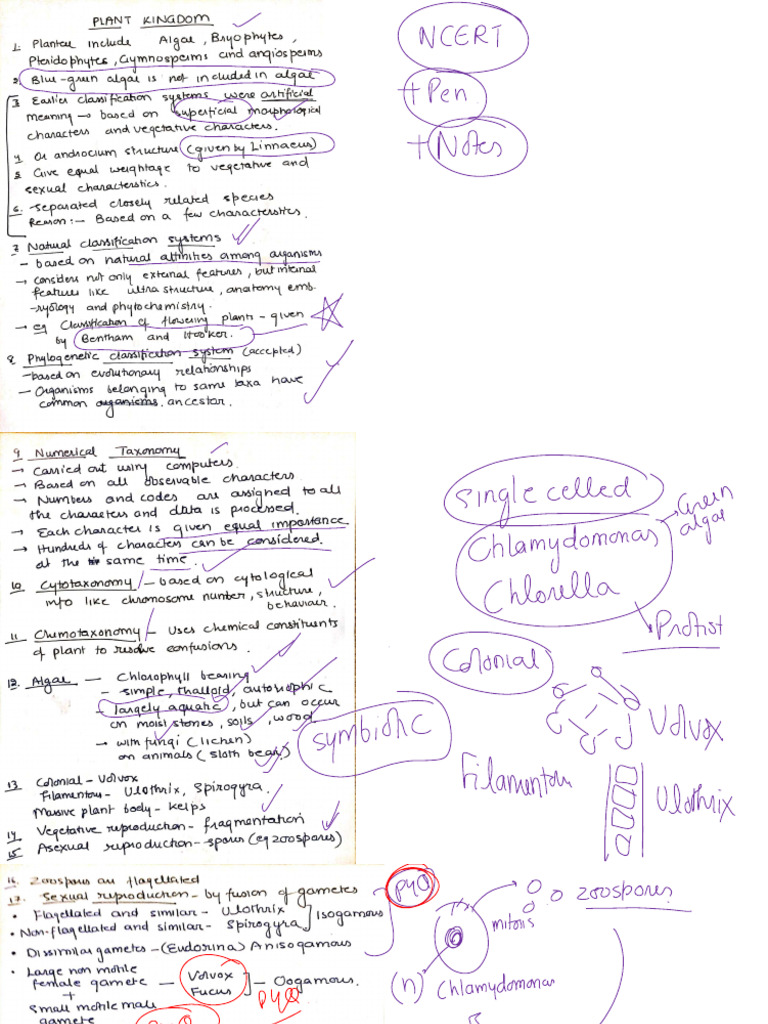 PLANT KINGDOM
1. Plantae include Algae, Bryophytes,
Pteridophytes, Gymnosperms and angiosperms
2. Blue-green algae is not included in algae
3. Earlier classification systems were artificial
meaning → based on superficial morphological
characters and vegetative characters.
4. Or androcium structure (given by Linnaeus)
5. Give equal weightage to vegetative and
sexual characterstics.
6. - Separated closely related species
Reason:- Based on a few characterstics.
7. Natural classification systems
- based on natural affinities among organisms
→ considers not only external features, but internal
features like ultra structure, anatomy emb-
-ryology and phytochemistry.
→ eg Classification of flowering plants - given
by Bentham and Hooker.
8. Phylogenetic classification system (accepted)
- based on evolutionary relationships
- Organisms belonging to same taxa have
common organisms ancestor.
9. Numerical Taxonomy
→ Carried out using computers.
→ Based on all observable characters
→ Numbers and codes are assigned to all
the characters and data is processed.
→ Each character is given equal importance
→ Hundreds of characters can be considered
at the same time.
10. Cytotaxonomy - based on cytological
info like chromosome number, structure,
behaviour.
11. Chemotaxonomy - Uses chemical constituents
of plant to resolve confusions.
12. Algae — Chlorophyll bearing
- simple, thalloid, autotrophic
- largely aquatic, but can occur
on moist stones, soils, wood
→ with fungi (lichen)
on animals (sloth bear)
13. Colonial - Volvox
Filamentous - Ulothrix, Spirogyra.
Massive plant body - kelps
14. Vegetative reproduction - fragmentation
15. Asexual reproduction - spores (eg zoospores)
16. Zoospores are flagellated
17. Sexual reproduction - by fusion of gametes
• Flagellated and similar - Ulothrix
• Non-flagellated and similar - Spirogyra
Isogamous
• Dissimilar gametes - (Eudorina) Anisogamous
• Large non motile
female gamete — Volvox
Fucus
- Oogamous.
+
Small motile male
gamete
PYQ
NCERT
+ Pen
+ Notes
Single celled
Chlamydomonas
→ Green
algae
Chlorella
Protist
Colonial
Volvox
symbiotic
Filamentous
Ulothrix
PYQ
zoospores
mitosis
(n)
Chlamydomonas